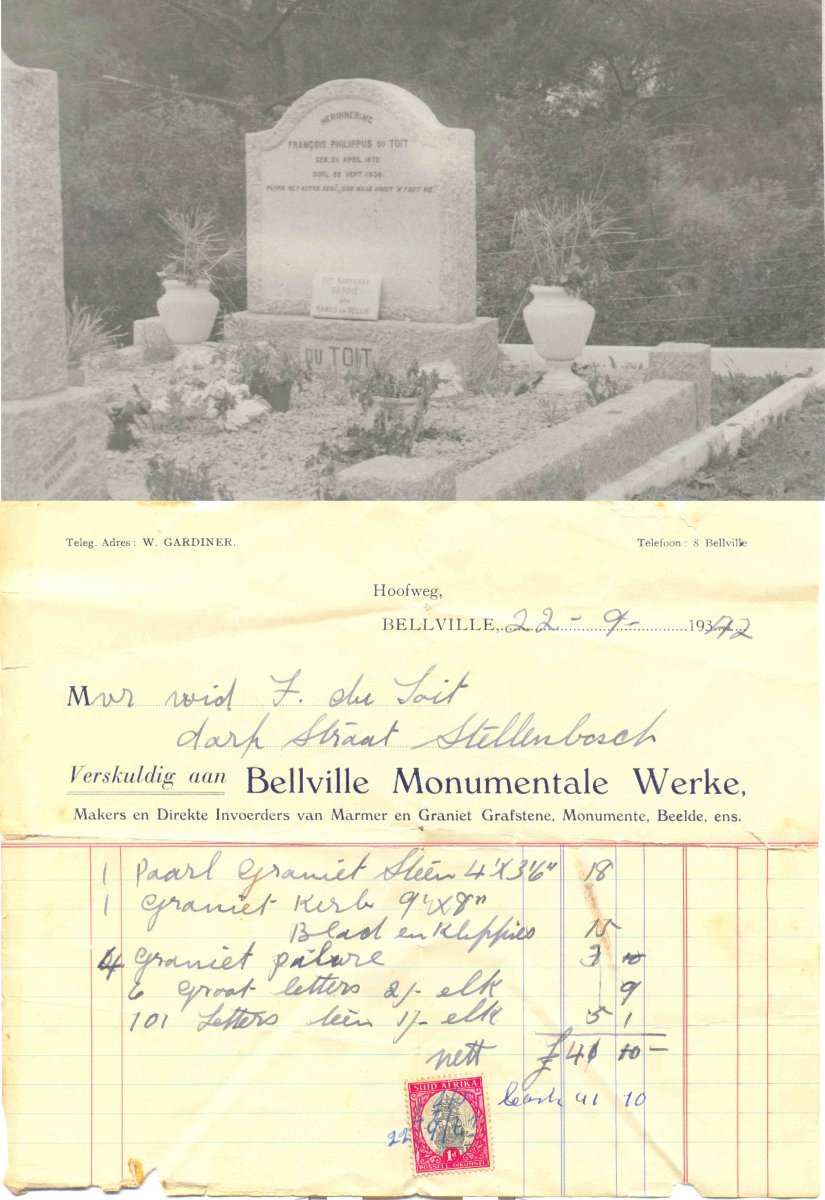 HERINNERING
FRANÇOIS PHILIPPUS DU TOIT
GEB. 26 APRIL 1872
OORL. 22 SEPT. 1938
PAPPIE HET ALTYD GEBÊ, GOD MAAK NOOIT 'N FOUT NIE.
PAPPIE
VAN
MANUS EN NELLIE
DU TOIT
Teleg. Adres: W. GARDINER. Telefoon: 8 Bellville
Hoofweg,
BELLVILLE, 22 - 9 - 1942
Mvr wid F. du Toit
dorp Straat Stellenbosch
Verskuldig aan Bellville Monumentale Werke,
Makers en Direkte Invoerders van Marmer en Graniet Grafstene, Monumente, Beelde, ens.
1 Paarl Graniet Steen 4'X3'6" 18
1 Graniet Kerb 9'X8"
Blad en Klippies 15
4 Graniet palare 3 10
6 Groot letters 2/- elk 9
101 Letters 1/- elk 5 1
nett £41 10 -
41 10
SUID AFRIKA
22/9/42
1D
POSSEËL INKOMSTE